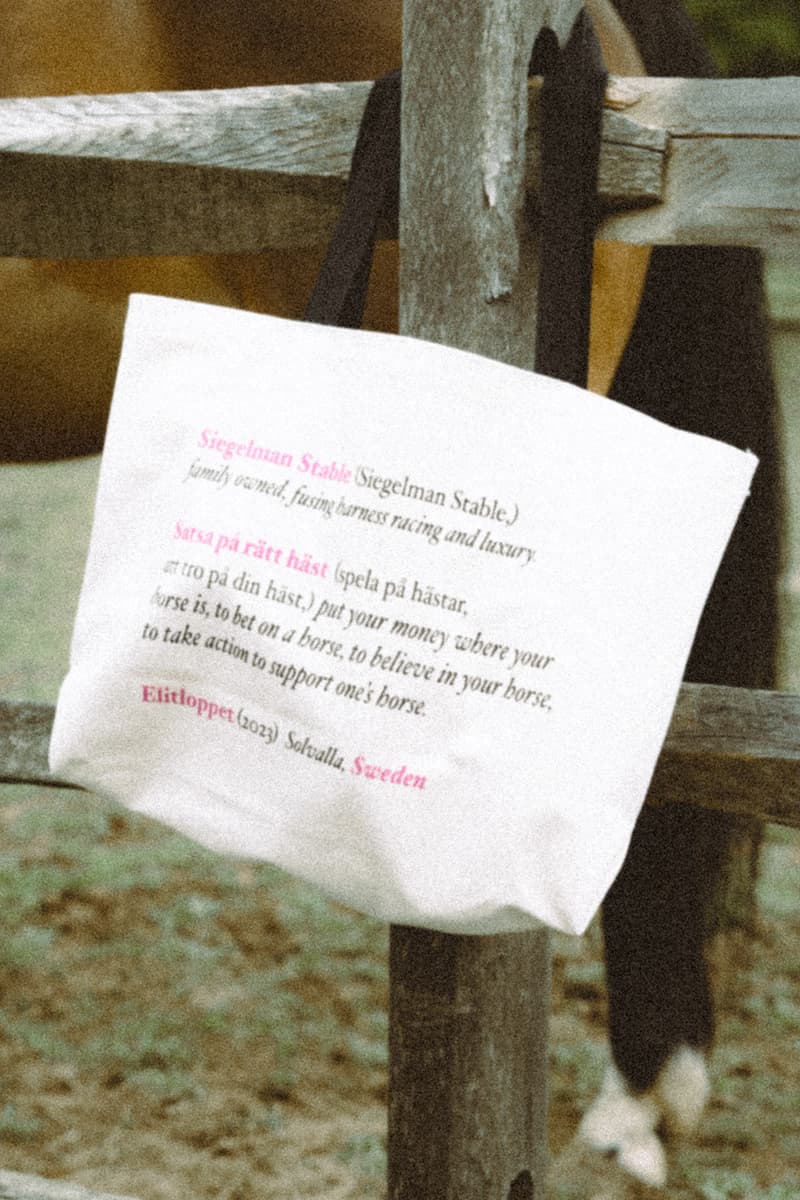 Siegelman Stable (Siegelman Stable,)
family owned, fusing harness racing and luxury.
Satsa på rätt häst (spela på hästar,
att tro på din häst,) put your money where your
horse is, to bet on a horse, to believe in your horse,
to take action to support one's horse.
Elitloppet (2023) Solvalla, Sweden